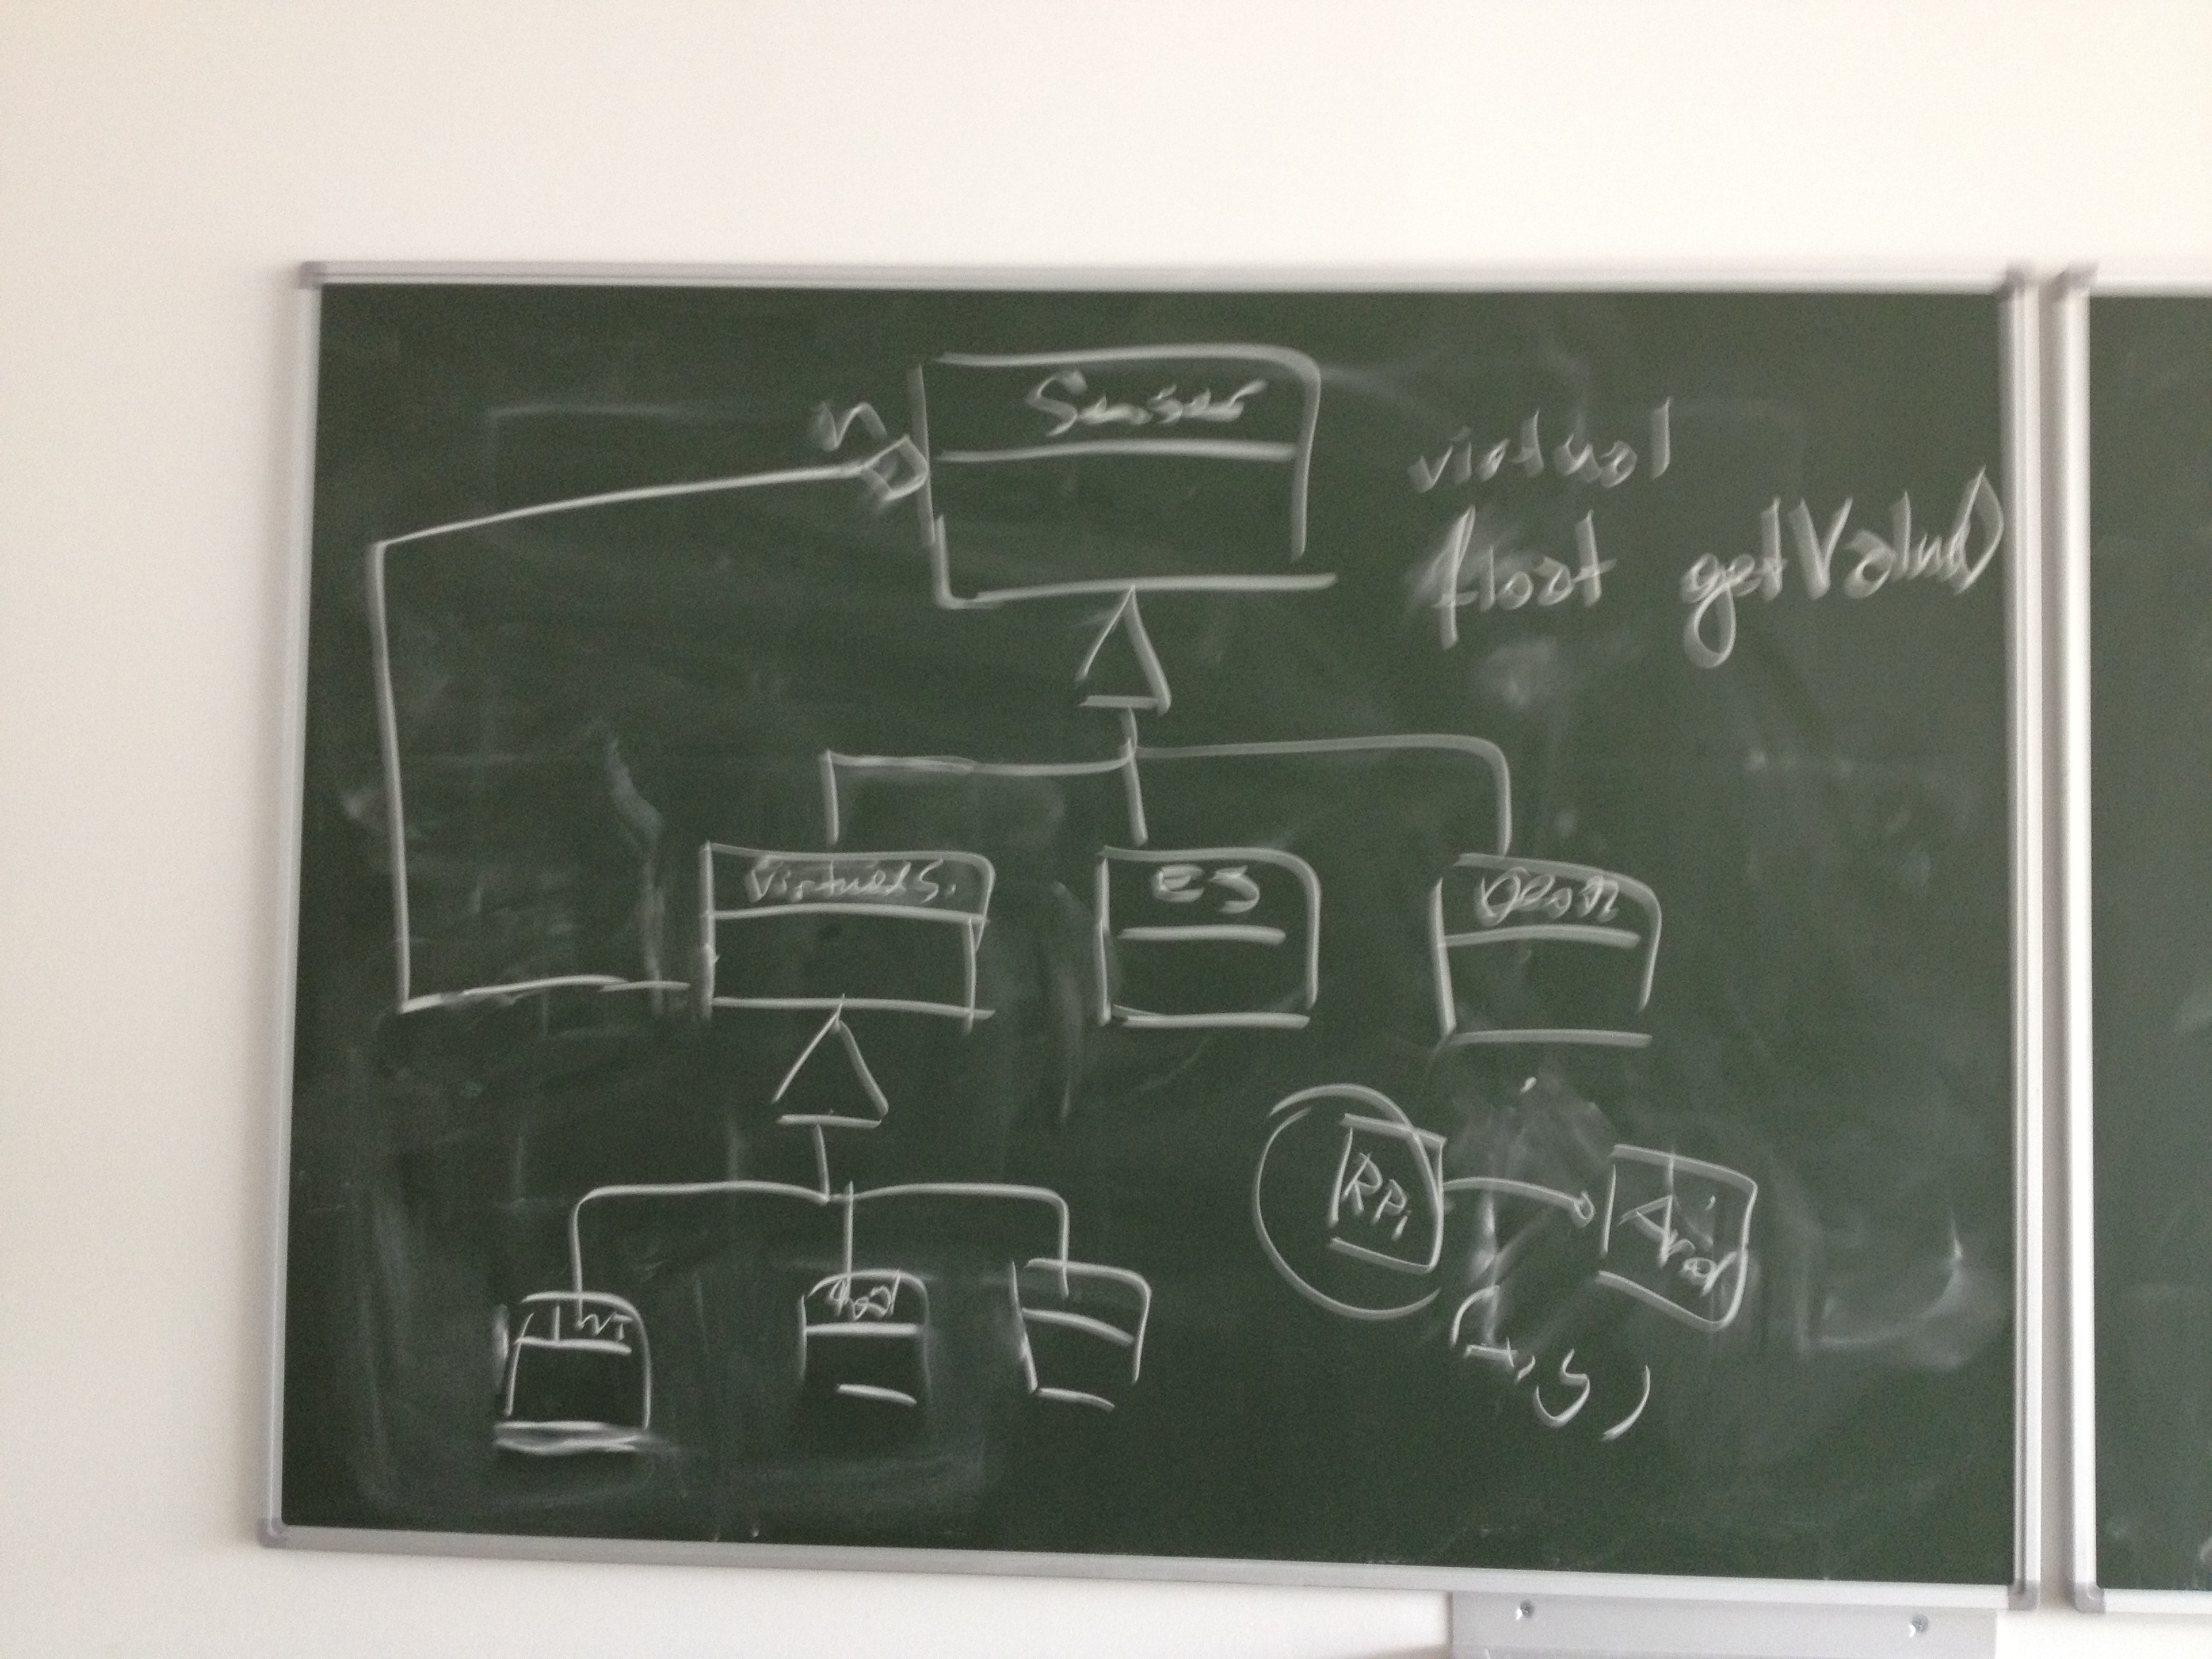 n
Sensor
virtual
float getValue()
VirtuelS.
ES
RPi
Ard
(x,y)